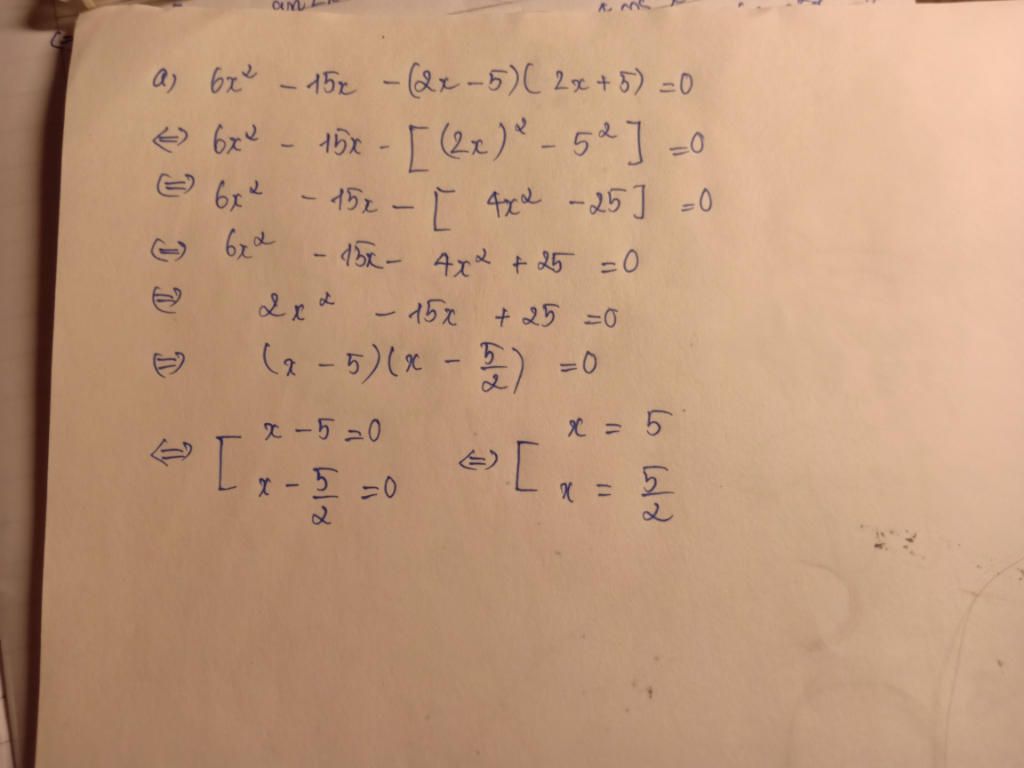 a) 6x² - 15x - (2x - 5)( 2x + 5) = 0
⇔ 6x² - 15x - [ (2x)² - 5² ] = 0
⇔ 6x² - 15x - [ 4x² - 25 ] = 0
⇔ 6x² - 15x - 4x² + 25 = 0
⇔ 2x² - 15x + 25 = 0
⇔ (x - 5)(x - 5/2) = 0
⇔ [ x - 5 = 0 ⇔ [ x = 5
x - 5/2 = 0 x = 5/2